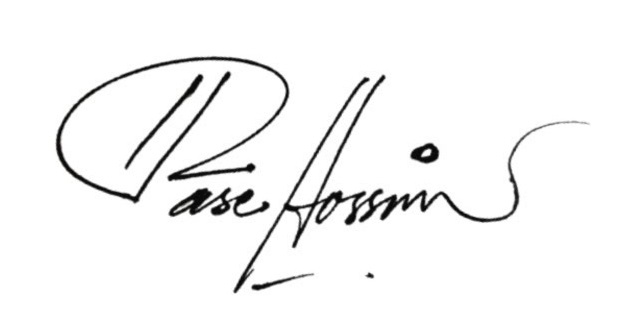 Rase Hossain